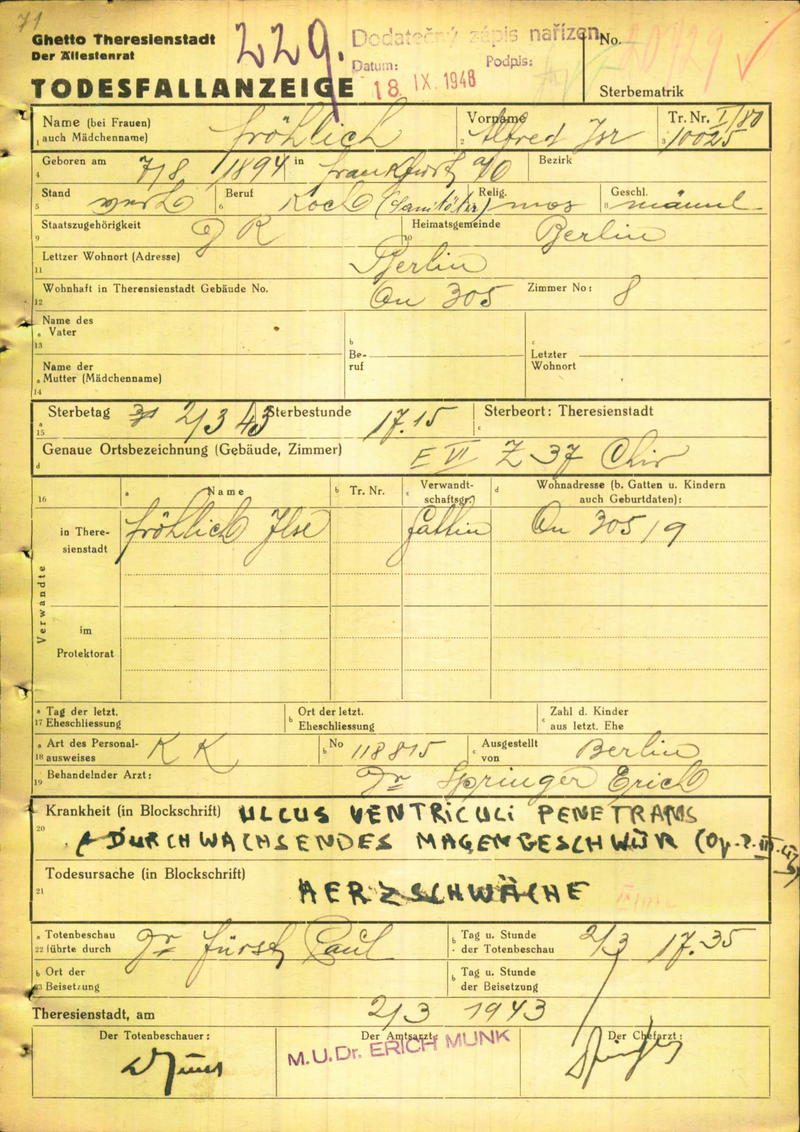 71
Ghetto Theresienstadt
Der Ältestenrat
229.
Dodatečný zápis nařízen
Datum: Podpis:
18 IX. 1948
No.
TODESFALLANZEIGE
Sterbematrik
Name (bei Frauen) auch Mädchenname) Fröhlich
Vorname Alfred Isr
Tr. Nr. I/80 10025
Geboren am 7/8 1894 in Frankfurt a/O Bezirk
Stand verh Beruf Koch (Sanitäter) Relig. mos Geschl. männl.
Staatszugehörigkeit D R Heimatsgemeinde Berlin
Letzter Wohnort (Adresse) Berlin
Wohnhaft in Therensienstadt Gebäude No. Qu 305 Zimmer No: 8
Name des Vater
Be-ruf
Letzter Wohnort
Name der Mutter (Mädchenname)
Sterbetag 2/3 43 Sterbestunde 17.15 Sterbeort: Theresienstadt
Genaue Ortsbezeichnung (Gebäude, Zimmer) E VI Z 37 Chir
Name Tr. Nr. Verwandt-schaftsgr.) Wohnadresse (b. Gatten u. Kindern auch Geburtdaten):
Verwandte
in There-sienstadt Fröhlich Ilse Gattin Qu 305/9
im Protektorat
Tag der letzt. Eheschliessung
Ort der letzt. Eheschliessung
Zahl d. Kinder aus letzt. Ehe
Art des Personal-ausweises K K No 118815 Ausgestellt von Berlin
Behandelnder Arzt: Dr Springer Erich
Krankheit (in Blockschrift) ULCUS VENTRICULI PENETRANS
DURCHWACHSENDES MAGENGESCHWÜR
Todesursache (in Blockschrift)
HERZSCHWÄCHE
Totenbeschau führte durch Dr Fürst Paul Tag u. Stunde der Totenbeschau 2/3 17.35
Ort der Beisetzung
Tag u. Stunde der Beisetzung
Theresienstadt, am 2/3 1943
Der Totenbeschauer:
Der Amtsarzt:
Der Chefarzt:
M.U.Dr. ERICH MUNK